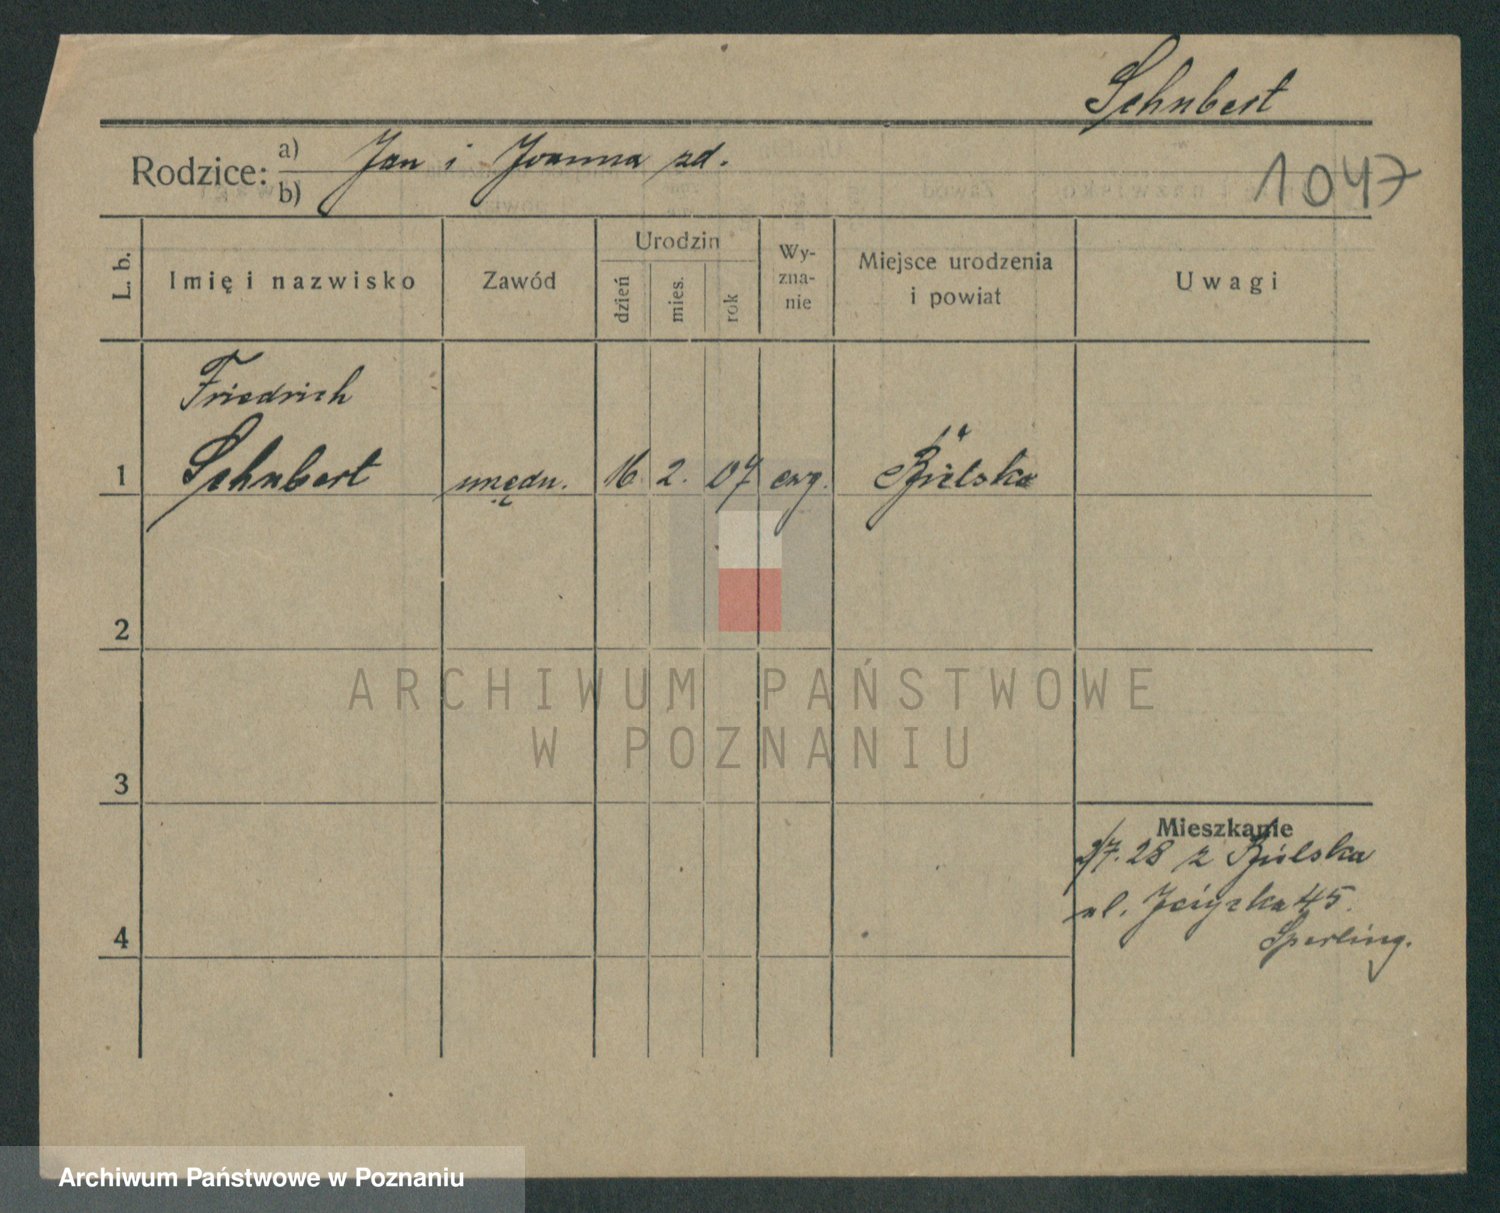 Schubert
Rodzice: a) Jan i Joanna zd.
b)
1047
L. b.
Imię i nazwisko
Zawód
Urodzin
dzień
mies.
rok
Wy-
zna-
nie
Miejsce urodzenia
i powiat
Uwagi
Friedrich
1 Schubert urzędn. 16. 2. 07 ewg. Bielska
2
3
Mieszkanie
7.28 z Bielska
ul. 45.
Sperling.
4
ARCHIWUM PAŃSTWOWE
W POZNANIU
Archiwum Państwowe w Poznaniu